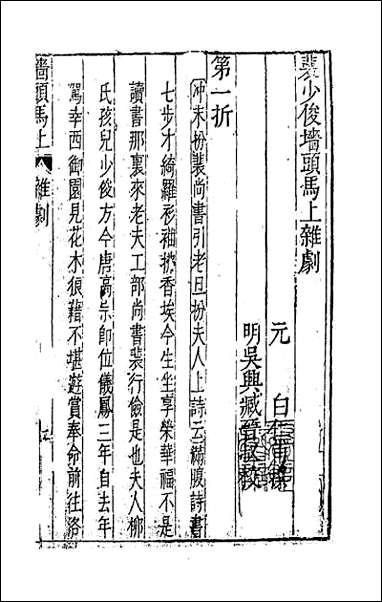 裴少俊墻頭馬上雜劇
元　白仁甫撰
明吳興臧晉叔校
第一折
冲末扮裴尚書引老旦扮夫人上詩云滿腹詩書
七步才綺羅衫袖拂香埃今生坐享榮華福不是
讀書那裏來老夫工部尚書裴行儉是也夫人柳
氏孩兒少俊方今唐高宗即位儀鳳三年自去年
駕幸西御園見花木狼藉不堪遊賞奉命前往洛
墻頭馬上　雜劇